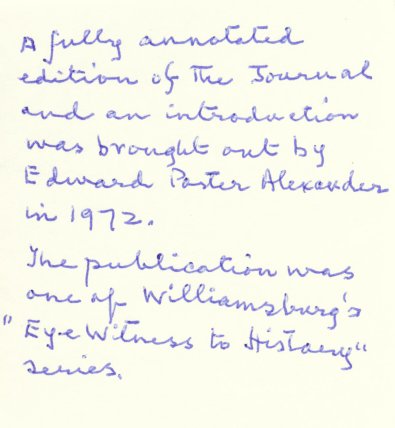 A fully annotated
edition of The Journal
and an introduction
was brought out by
Edward Porter Alexander
in 1972.
The publication was
one of Williamsburg's
"Eye Witness to History"
series.